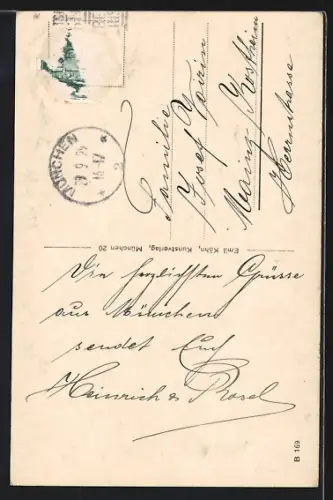 MÜNCHEN
29 9 25
16-17
* 2 *
Familie
Josef
Mainz / Kostheim
Herrnstrasse
Emil Köhn, Kunstverlag, München 20
Die herzlichsten Grüsse
aus München
sendet Euch
Heinrich & Rosel
B 169